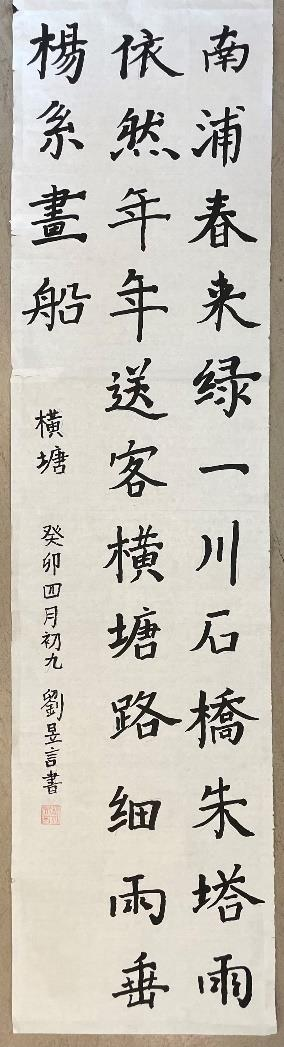 南浦春来绿一川石橋朱塔雨
依然年年送客横塘路细雨垂
楊系畫船
横塘 癸卯四月初九 劉昱言書